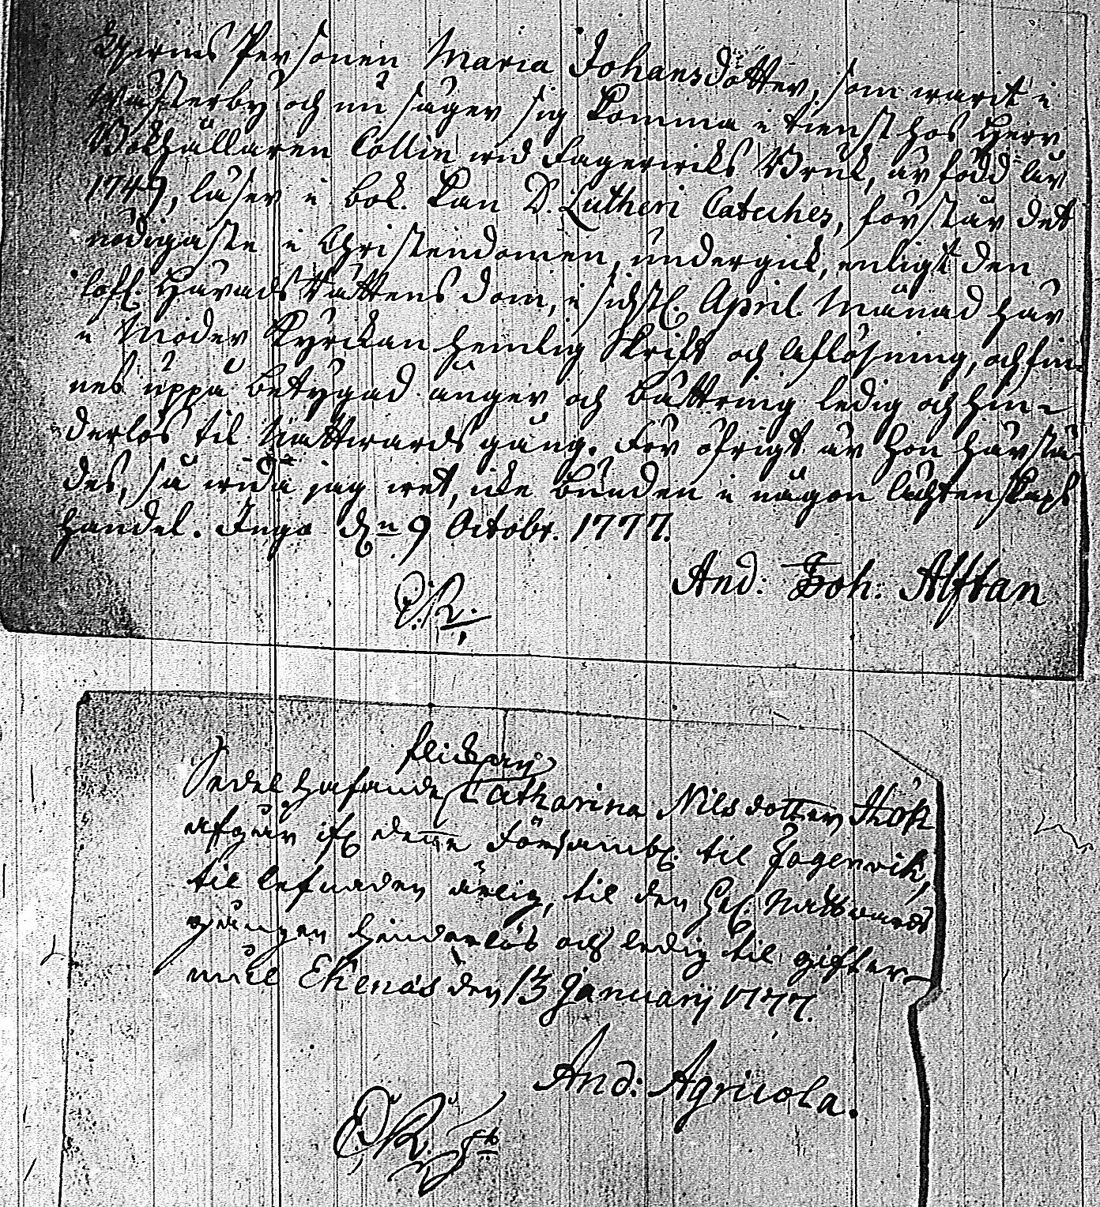 Qwins Personen Maria Johansdotter, som warit i
Wästerby och nu säger sig komma i tienst hos Herr
Bokhållaren Collin wid Fagerwiks Bruk, är född år
1749, läser i bok. kan D. Lutheri Cateches, förstår det
nödigaste i Christendomen, undergick, enligt den
löfl. Härads Rättens dom, i sidstl. April Månad här
i Moder Kyrckan hemlig Skrift och Aflösning, och fin-
nes uppå betygad ånger och bättring ledig och hin-
derlös til Nattwards gång. För öfrigt är hon härstä-
des, så wida jag wet, icke bunden i någon ächtenskaps
handel. Ingo d. 9 Octobr. 1777.
And: Joh: Alftan
flickan
Sedelhafande Catharina Nilsdotter Hök
afgår ifr. denne Försambl. til Fagerwik,
til lefnaden ärlig, til den Hel. Nattwards
gången hinderlös och ledig til gifter-
mål Ekenäs den 13 January 1777.
And: Agricola.